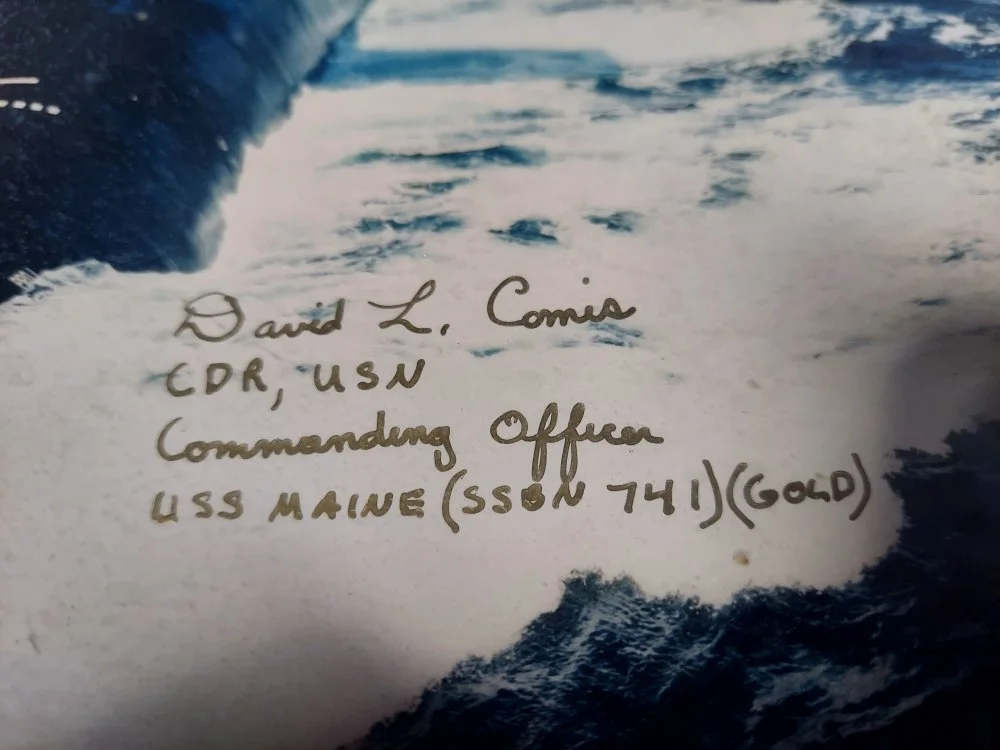 David L. Comis
CDR, USN
Commanding Officer
USS MAINE (SSBN 741)(GOLD)